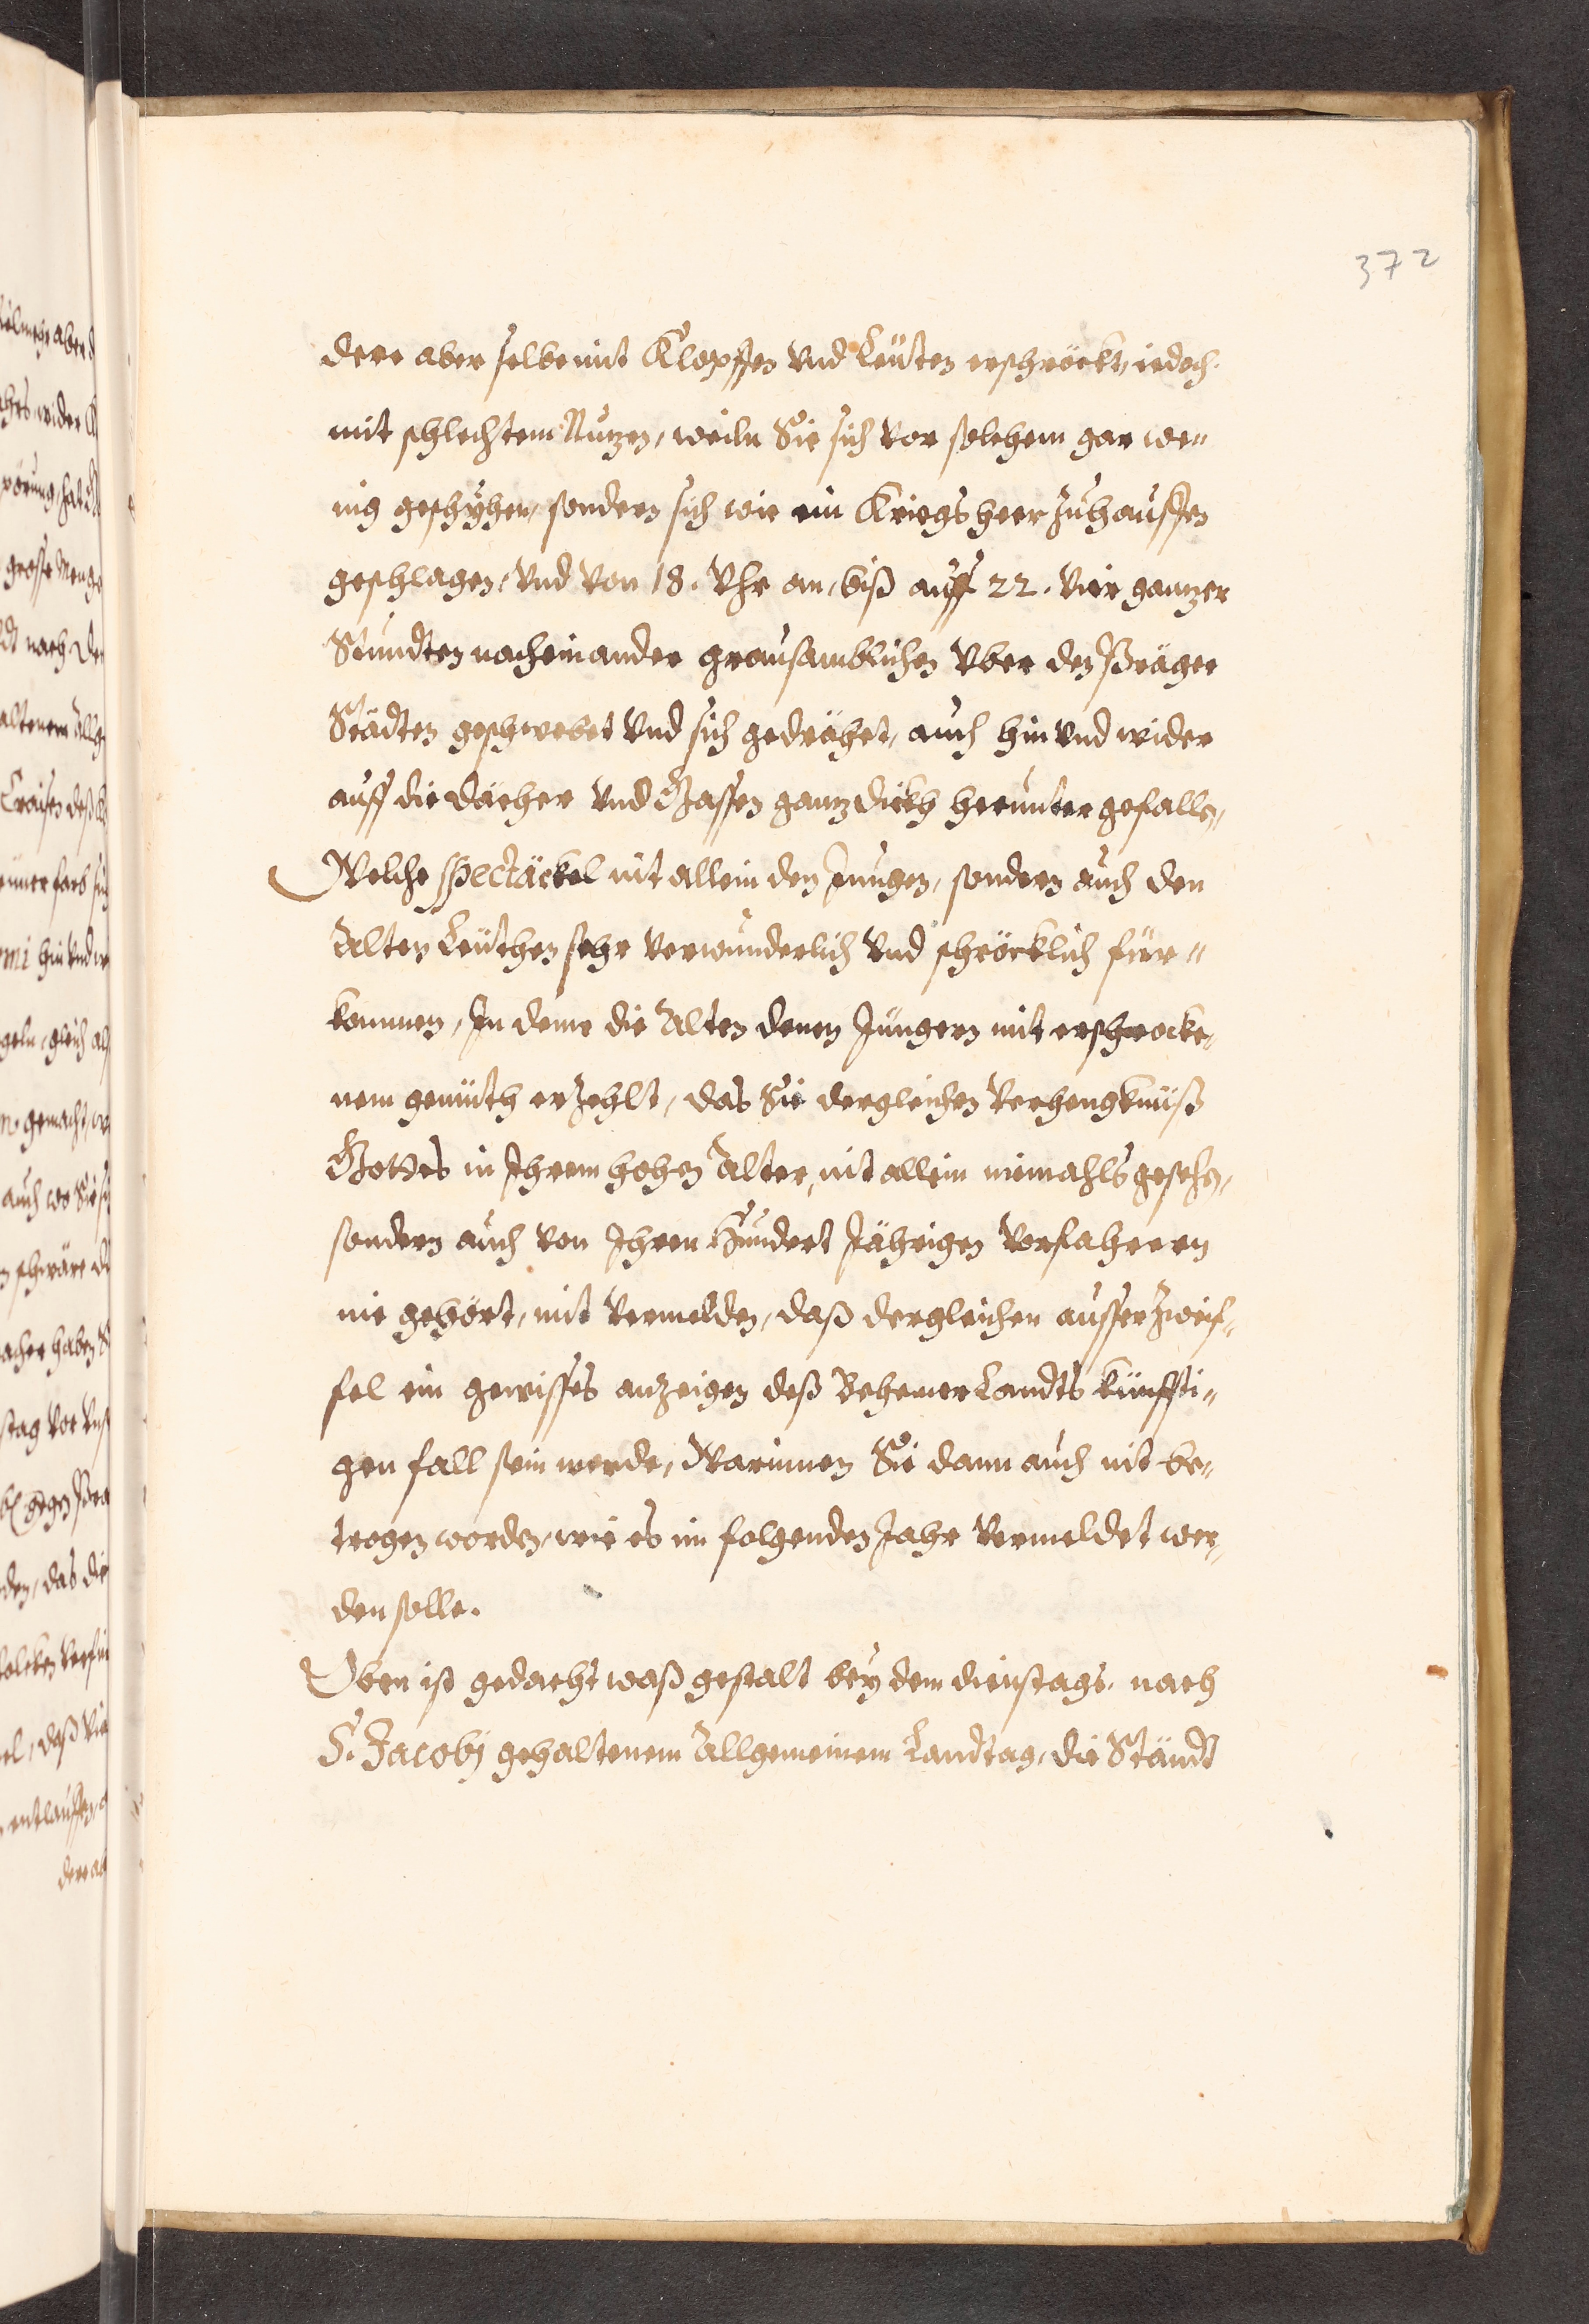 372
dere aber selbe mit Klopffen vnd Leuten erschröckt, iedoch
mit schlechtem Nutzen, weiln Sie sich vor solchem gar we„
nig geschyhen, sondern sich wie ein Kriegsheer zuhauffen
geschlagen, vnd von 18. Vhr an, biß auff 22. vier gantzer
Stundten nacheinander grausamblichen Vber den Präger
Städten geschwebet vnd sich gedrähet, auch hin vnd wider
auff die dächer vnd Gassen gantz dickh herunter gefallen,
Welche Spectäckel nit allein den Jungen, sondern auch den
Alten Leüthen sehr verwunderlich vnd schröcklich für„
kommen, In deme die Alten denen Jüngern mit erschrocke„
nem gemüth erzehlt, das Sie dergleichen Verhengknüß
Gottes in Ihrem hohen Alter, nit allein niemahls gesehen,
sondern auch von Ihren Hundert Jährigen Vorfahrern
nie gehört, mit Vermelden, daß dergleichen ausser zweif„
fel ein gewisses anzeigen deß Behemer Landts künffti„
gen fall sein werde, Warinnen Sie dann auch nit be„
trogen worden, wie es im folgenden Jahr Vermeldet wer„
den solle.
Oben ist gedacht waß gestalt bey dem dienstags nach
S. Jacobj gehaltenem Allgemeinem Landtag, die Ständt